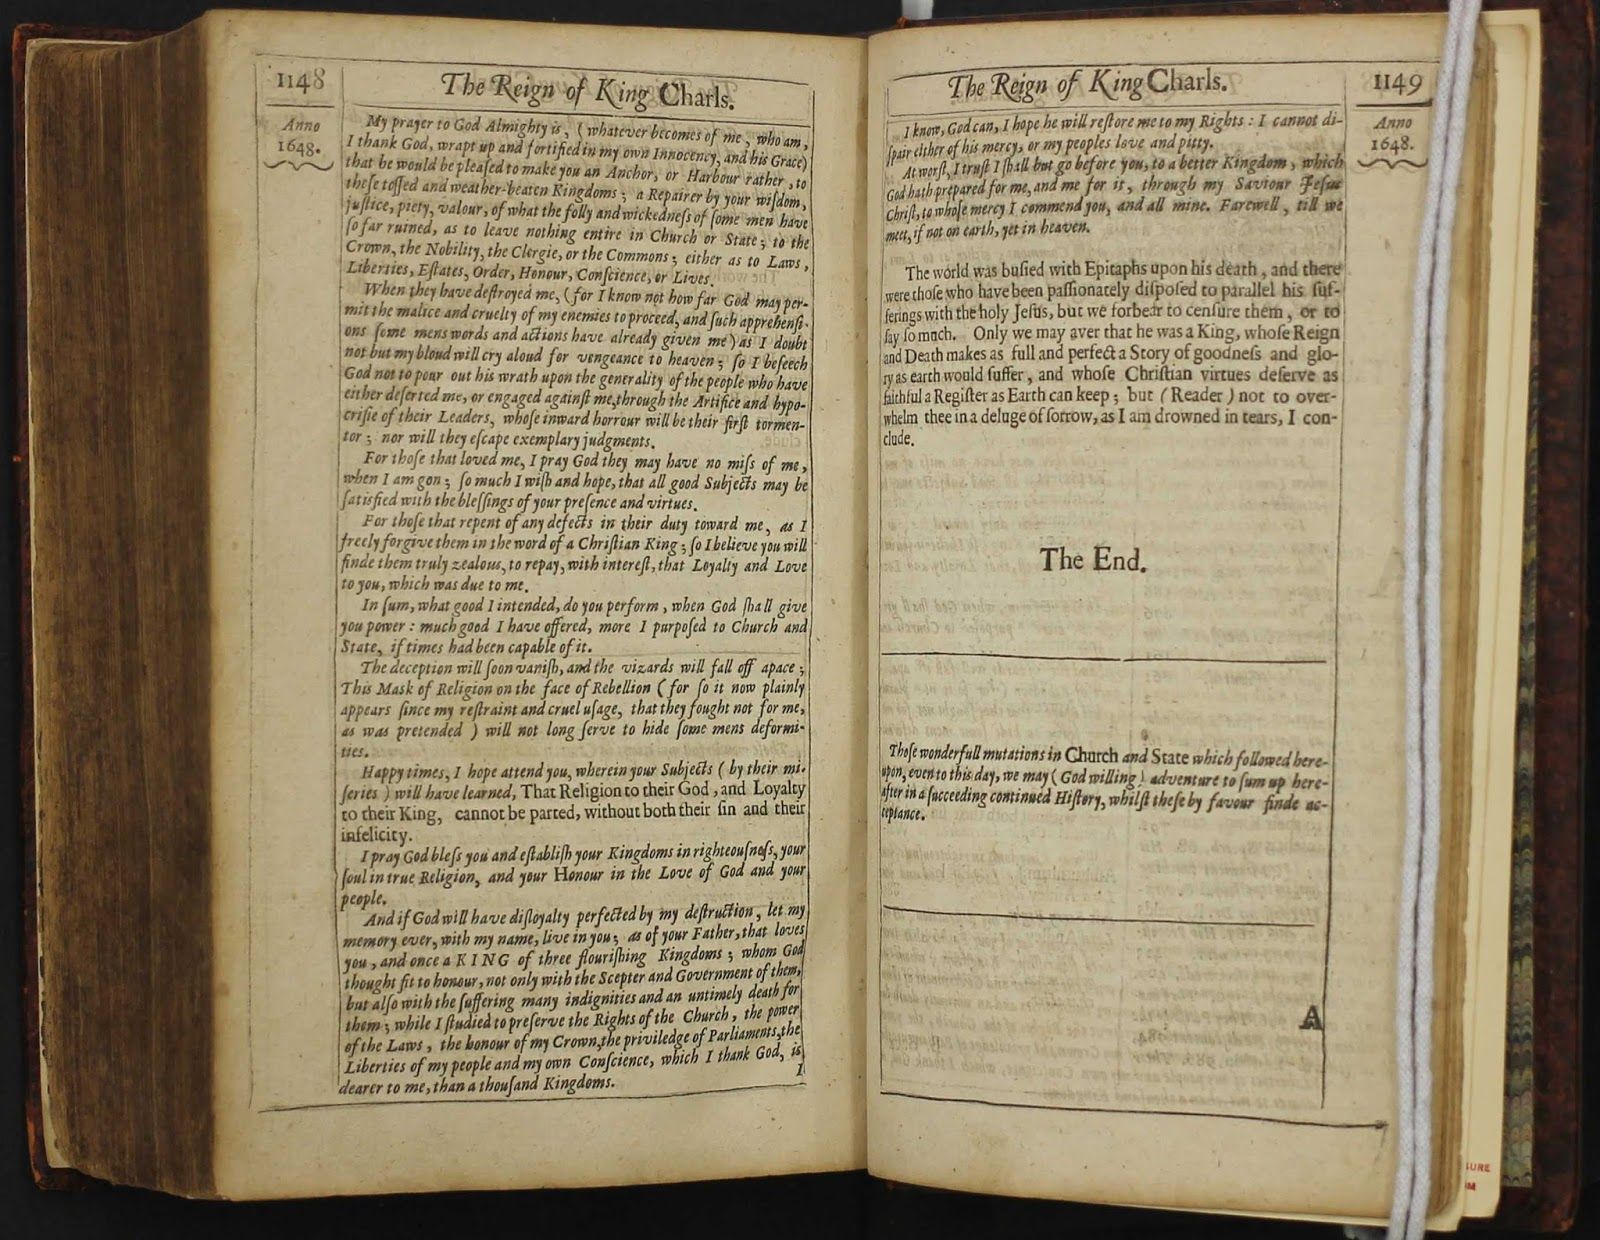 1148
The Reign of King Charls.
Anno
1648.
My prayer to God Almighty is, (whatever becomes of me, who am,
I thank God, wrapt up and fortified in my own Innocency, and his Grace)
that he would be pleaſed to make you an Anchor, or Harbour rather, to
theſe toſſed and weather-beaten Kingdoms; a Repairer by your wiſdom,
juſtice, piety, valour, of what the folly and wickedneſs of ſome men have
ſo far ruined, as to leave nothing entire in Church or State; to the
Crown, the Nobility, the Clergie, or the Commons; either as to Laws,
Liberties, Eſtates, Order, Honour, Conſcience, or Lives.
When they have deſtroyed me, (for I know not how far God may per-
mit the malice and cruelty of my enemies to proceed, and ſuch apprehenſi-
ons ſome mens words and actions have already given me) as I doubt
not but my bloud will cry aloud for vengeance to heaven; ſo I beſeech
God not to pour out his wrath upon the generality of the people who have
either deſerted me, or engaged againſt me, through the Artifice and hypo-
criſie of their Leaders, whoſe inward horrour will be their firſt tormen-
tor; nor will they eſcape exemplary judgments.
For thoſe that loved me, I pray God they may have no miſs of me,
when I am gon; ſo much I wiſh and hope, that all good Subjects may be
ſatisfied with the bleſſings of your preſence and virtues.
For thoſe that repent of any defects in their duty toward me, as I
freely forgive them in the word of a Chriſtian King; ſo I believe you will
finde them truly zealous, to repay, with intereſt, that Loyalty and Love
to you, which was due to me.
In ſum, what good I intended, do you perform, when God ſhall give
you power: much good I have offered, more I purpoſed to Church and
State, if times had been capable of it.
The deception will ſoon vaniſh, and the vizards will fall off apace;
This Mask of Religion on the face of Rebellion (for ſo it now plainly
appears ſince my reſtraint and cruel uſage, that they fought not for me,
as was pretended) will not long ſerve to hide ſome mens deformi-
ties.
Happy times, I hope attend you, wherein your Subjects (by their mi-
ſeries) will have learned, That Religion to their God, and Loyalty
to their King, cannot be parted, without both their ſin and their
infelicity.
I pray God bleſs you and eſtabliſh your Kingdoms in righteouſneſs, your
ſoul in true Religion, and your Honour in the Love of God and your
people.
And if God will have diſloyalty perfected by my deſtruction, let my
memory ever, with my name, live in you; as of your Father, that loves
you, and once a KING of three flouriſhing Kingdoms; whom God
thought fit to honour, not only with the Scepter and Government of them,
but alſo with the ſuffering many indignities and an untimely death for
them; while I ſtudied to preſerve the Rights of the Church, the power
of the Laws, the honour of my Crown, the priviledge of Parliaments, the
Liberties of my people and my own Conſcience, which I thank God, is
dearer to me, than a thouſand Kingdoms.
I
The Reign of King Charls.
1149
Anno
1648.
I know, God can, I hope he will reſtore me to my Rights: I cannot di-
ſpair either of his mercy, or my peoples love and pitty.
At worſt, I truſt I ſhall but go before you, to a better Kingdom, which
God hath prepared for me, and me for it, through my Saviour Jeſus
Chriſt, to whoſe mercy I commend you, and all mine. Farewell, till we
meet, if not on earth, yet in heaven.
The world was buſied with Epitaphs upon his death, and there
were thoſe who have been paſſionately diſpoſed to parallel his ſuf-
ferings with the holy Jeſus, but we forbear to cenſure them, or to
ſay ſo much. Only we may aver that he was a King, whoſe Reign
and Death makes as full and perfect a Story of goodneſs and glo-
ry as earth would ſuffer, and whoſe Chriſtian virtues deſerve as
faithful a Regiſter as Earth can keep; but (Reader) not to over-
whelm thee in a deluge of ſorrow, as I am drowned in tears, I con-
clude.
The End.
Thoſe wonderfull mutations in Church and State which followed here-
upon, even to this day, we may (God willing) adventure to ſum up here-
after in a ſucceeding continued Hiſtory, whilſt theſe by favour finde ac-
ceptance.
A